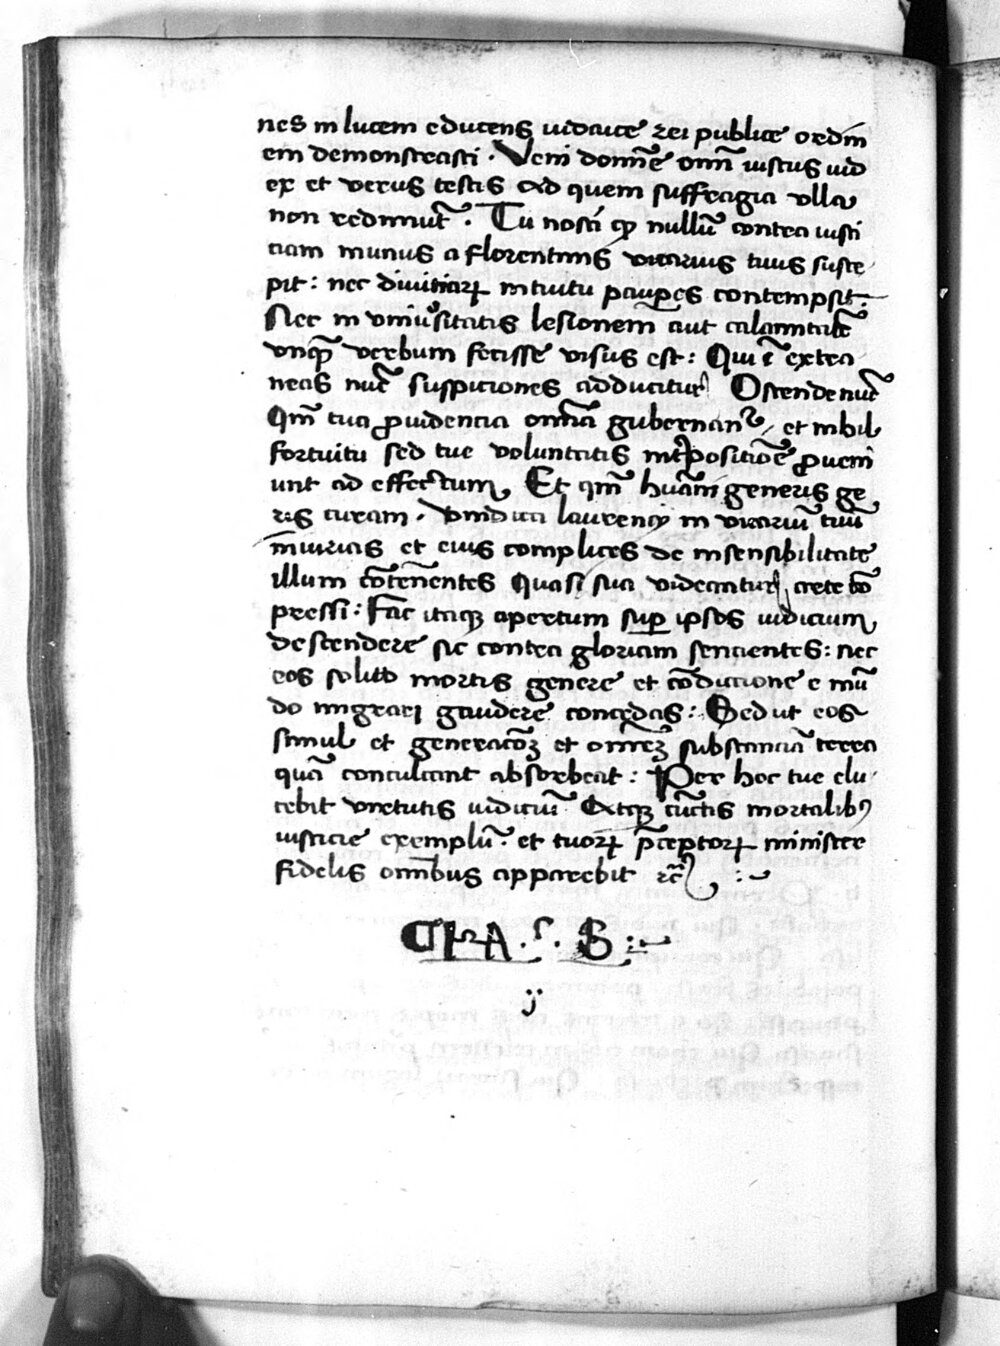 nes in lucem educens iudaice rei publice ordin
em demonstrasti . Veni domīe om̄i iustus iud
ex et verus testis Ad quem suffragia vlla
non redimūt . Tu nosti ꝙ nullū contra iusti
ciam munus a florentinis vicarius tuus susce
pit : nec diuitiaꝝ intuitu paupes contempsit .
Nec in vniuersitatis lesionem aut calamitatē
vnqꝫ verbum fecisse visus est : Qui ī extra
neas nūc suspiciones adducitur Ostende nūc
Qm̄ tua ꝓuidencia om̄ia gubernant᷑ , et nihil
fortuitu sed tue voluntatis int̄positiōe ꝓueni
unt ad effectum Et qm̄ hūani generis ge
ris curam . vindica laurencij in vicariū tuū
iniurias et eius complices de insensibilitate
illum cōtēnentes quasi sua videantur arce
pressi : Fac itaqꝫ apertum suꝑ ipsos iudicium
descendere sic contra gloriam sencientes : nec
eos solito mortis genere et cōdicione e mū
do migrari gaudere concedas : Sed ut eos
simul et generacōꝫ et om̄eꝫ substanciā terra
quā conculcant absorbeat : Per hoc tue elu
cebit virtutis iudiciū Atqꝫ cūctis mortalibꝯ
iusticie exemplū . et tuoꝝ p̄ceptoꝝ ministre
fidelis omībus apparebit ⁊c̄ :
A . S . B :
ij